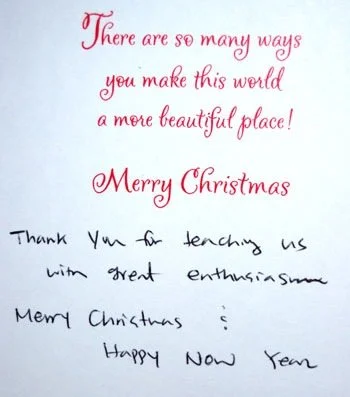 There are so many ways
you make this world
a more beautiful place!
Merry Christmas
Thank You for teaching us
with great enthusiasm
Merry Christmas &
Happy New Year